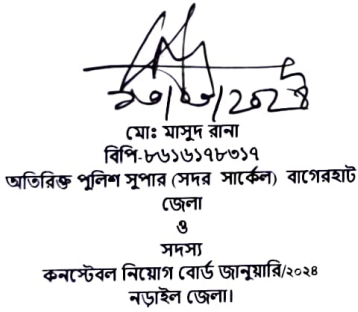 ২৩/০৩/২০২৪
মোঃ মাসুদ রানা
বিপি-৮৬১৬১৭৮৩১৭
অতিরিক্ত পুলিশ সুপার (সদর সার্কেল) বাগেরহাট
জেলা
ও
সদস্য
কনস্টেবল নিয়োগ বোর্ড জানুয়ারি/২০২৪
নড়াইল জেলা।